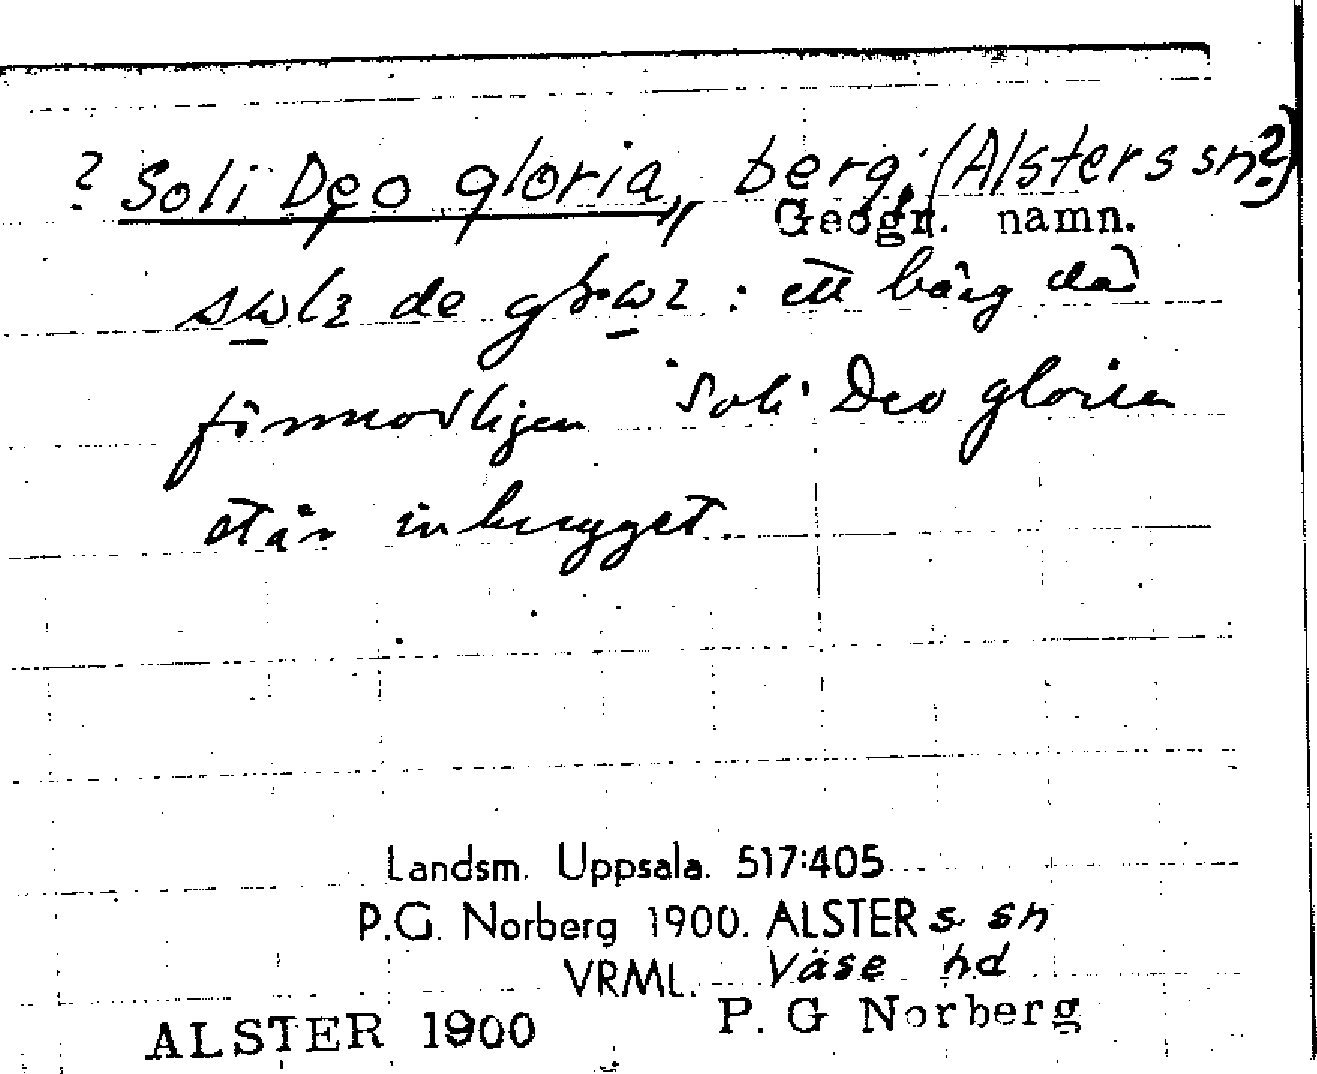 ? Soli Deo gloria, berg, (Alsters sn?)
Geogr. namn.
de : ett bärg där
förmodligen "Soli Deo gloria
står inhugget
Landsm. Uppsala. 517:405
P.G. Norberg 1900. ALSTERs sn
VRML. Väse hd
ALSTER 1900 P. G Norberg